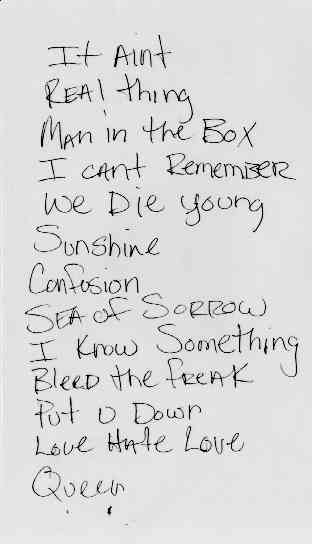 It Aint
REAl thing
MAN in the BOX
I cANt REMEMBER
We Die young
Sunshine
Confusion
SEA oF SORROW
I Know Something
BleeD the FREAK
Put U Down
Love HAte Love
Queen